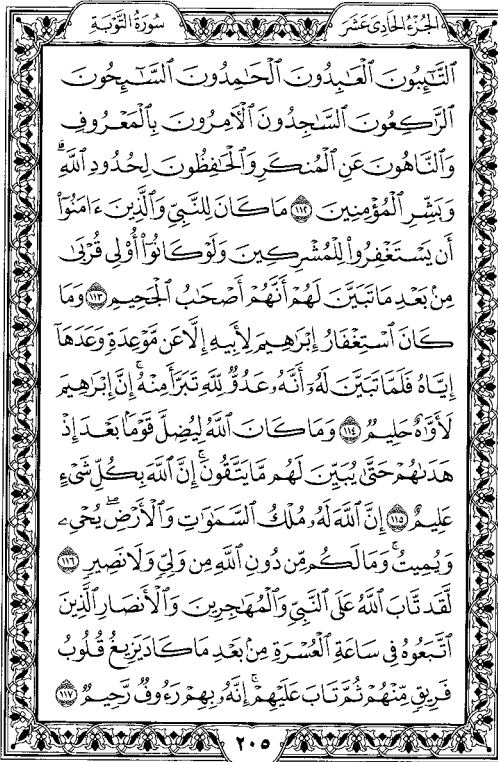 سُورَةُ التَّوْبَةِ
الجُزْءُ الحَادِى عَشَرَ
ٱلتَّٰٓئِبُونَ ٱلْعَٰبِدُونَ ٱلْحَٰمِدُونَ ٱلسَّٰٓئِحُونَ
ٱلرَّٰكِعُونَ ٱلسَّٰجِدُونَ ٱلْءَامِرُونَ بِٱلْمَعْرُوفِ
وَٱلنَّاهُونَ عَنِ ٱلْمُنكَرِ وَٱلْحَٰفِظُونَ لِحُدُودِ ٱللَّهِۗ
وَبَشِّرِ ٱلْمُؤْمِنِينَ ١١٢ مَا كَانَ لِلنَّبِىِّ وَٱلَّذِينَ ءَامَنُوٓا۟
أَن يَسْتَغْفِرُوا۟ لِلْمُشْرِكِينَ وَلَوْ كَانُوٓا۟ أُو۟لِى قُرْبَىٰ
مِنۢ بَعْدِ مَا تَبَيَّنَ لَهُمْ أَنَّهُمْ أَصْحَٰبُ ٱلْجَحِيمِ ١١٣ وَمَا
كَانَ ٱسْتِغْفَارُ إِبْرَٰهِيمَ لِأَبِيهِ إِلَّا عَن مَّوْعِدَةٍ وَعَدَهَآ
إِيَّاهُ فَلَمَّا تَبَيَّنَ لَهُۥٓ أَنَّهُۥ عَدُوٌّ لِّلَّهِ تَبَرَّأَ مِنْهُۚ إِنَّ إِبْرَٰهِيمَ
لَأَوَّٰهٌ حَلِيمٌ ١١٤ وَمَا كَانَ ٱللَّهُ لِيُضِلَّ قَوْمًۢا بَعْدَ إِذْ
هَدَىٰهُمْ حَتَّىٰ يُبَيِّنَ لَهُم مَّا يَتَّقُونَۚ إِنَّ ٱللَّهَ بِكُلِّ شَىْءٍ
عَلِيمٌ ١١٥ إِنَّ ٱللَّهَ لَهُۥ مُلْكُ ٱلسَّمَٰوَٰتِ وَٱلْأَرْضِۖ يُحْىِۦ
وَيُمِيتُۚ وَمَا لَكُم مِّن دُونِ ٱللَّهِ مِن وَلِىٍّ وَلَا نَصِيرٍ ١١٦
لَّقَد تَّابَ ٱللَّهُ عَلَى ٱلنَّبِىِّ وَٱلْمُهَٰجِرِينَ وَٱلْأَنصَارِ ٱلَّذِينَ
ٱتَّبَعُوهُ فِى سَاعَةِ ٱلْعُسْرَةِ مِنۢ بَعْدِ مَا كَادَ يَزِيغُ قُلُوبُ
فَرِيقٍ مِّنْهُمْ ثُمَّ تَابَ عَلَيْهِمْۚ إِنَّهُۥ بِهِمْ رَءُوفٌ رَّحِيمٌ ١١٧
٢٠٥